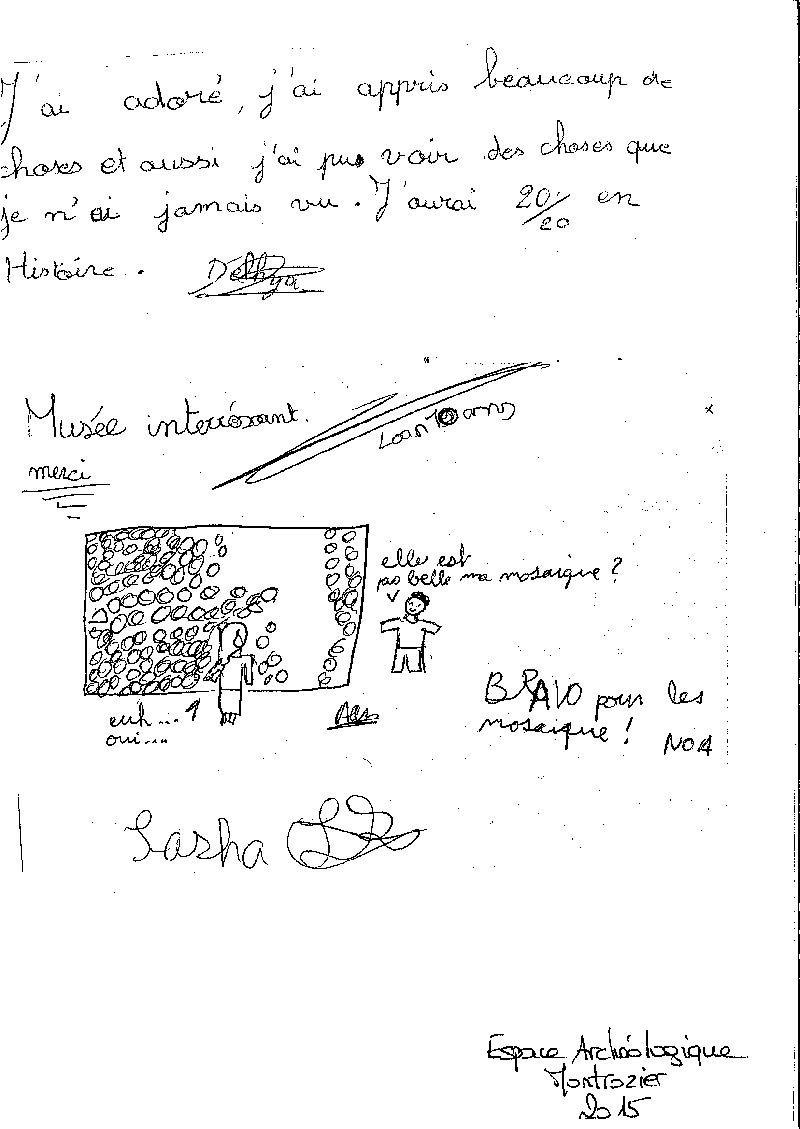 J'ai adoré, j'ai appris beaucoup de
choses et aussi j'ai pus voir des choses que
je n'ai jamais vu. J'aurai 20/20 en
Histoire.
Musée interrésant.
Loan 10 ans
merci
elle est
pas belle ma mosaique ?
euh....
oui....
BRAVO pour les
mosaique !
NOA
Sasha
Espace Archéologique
Montrozier
2015